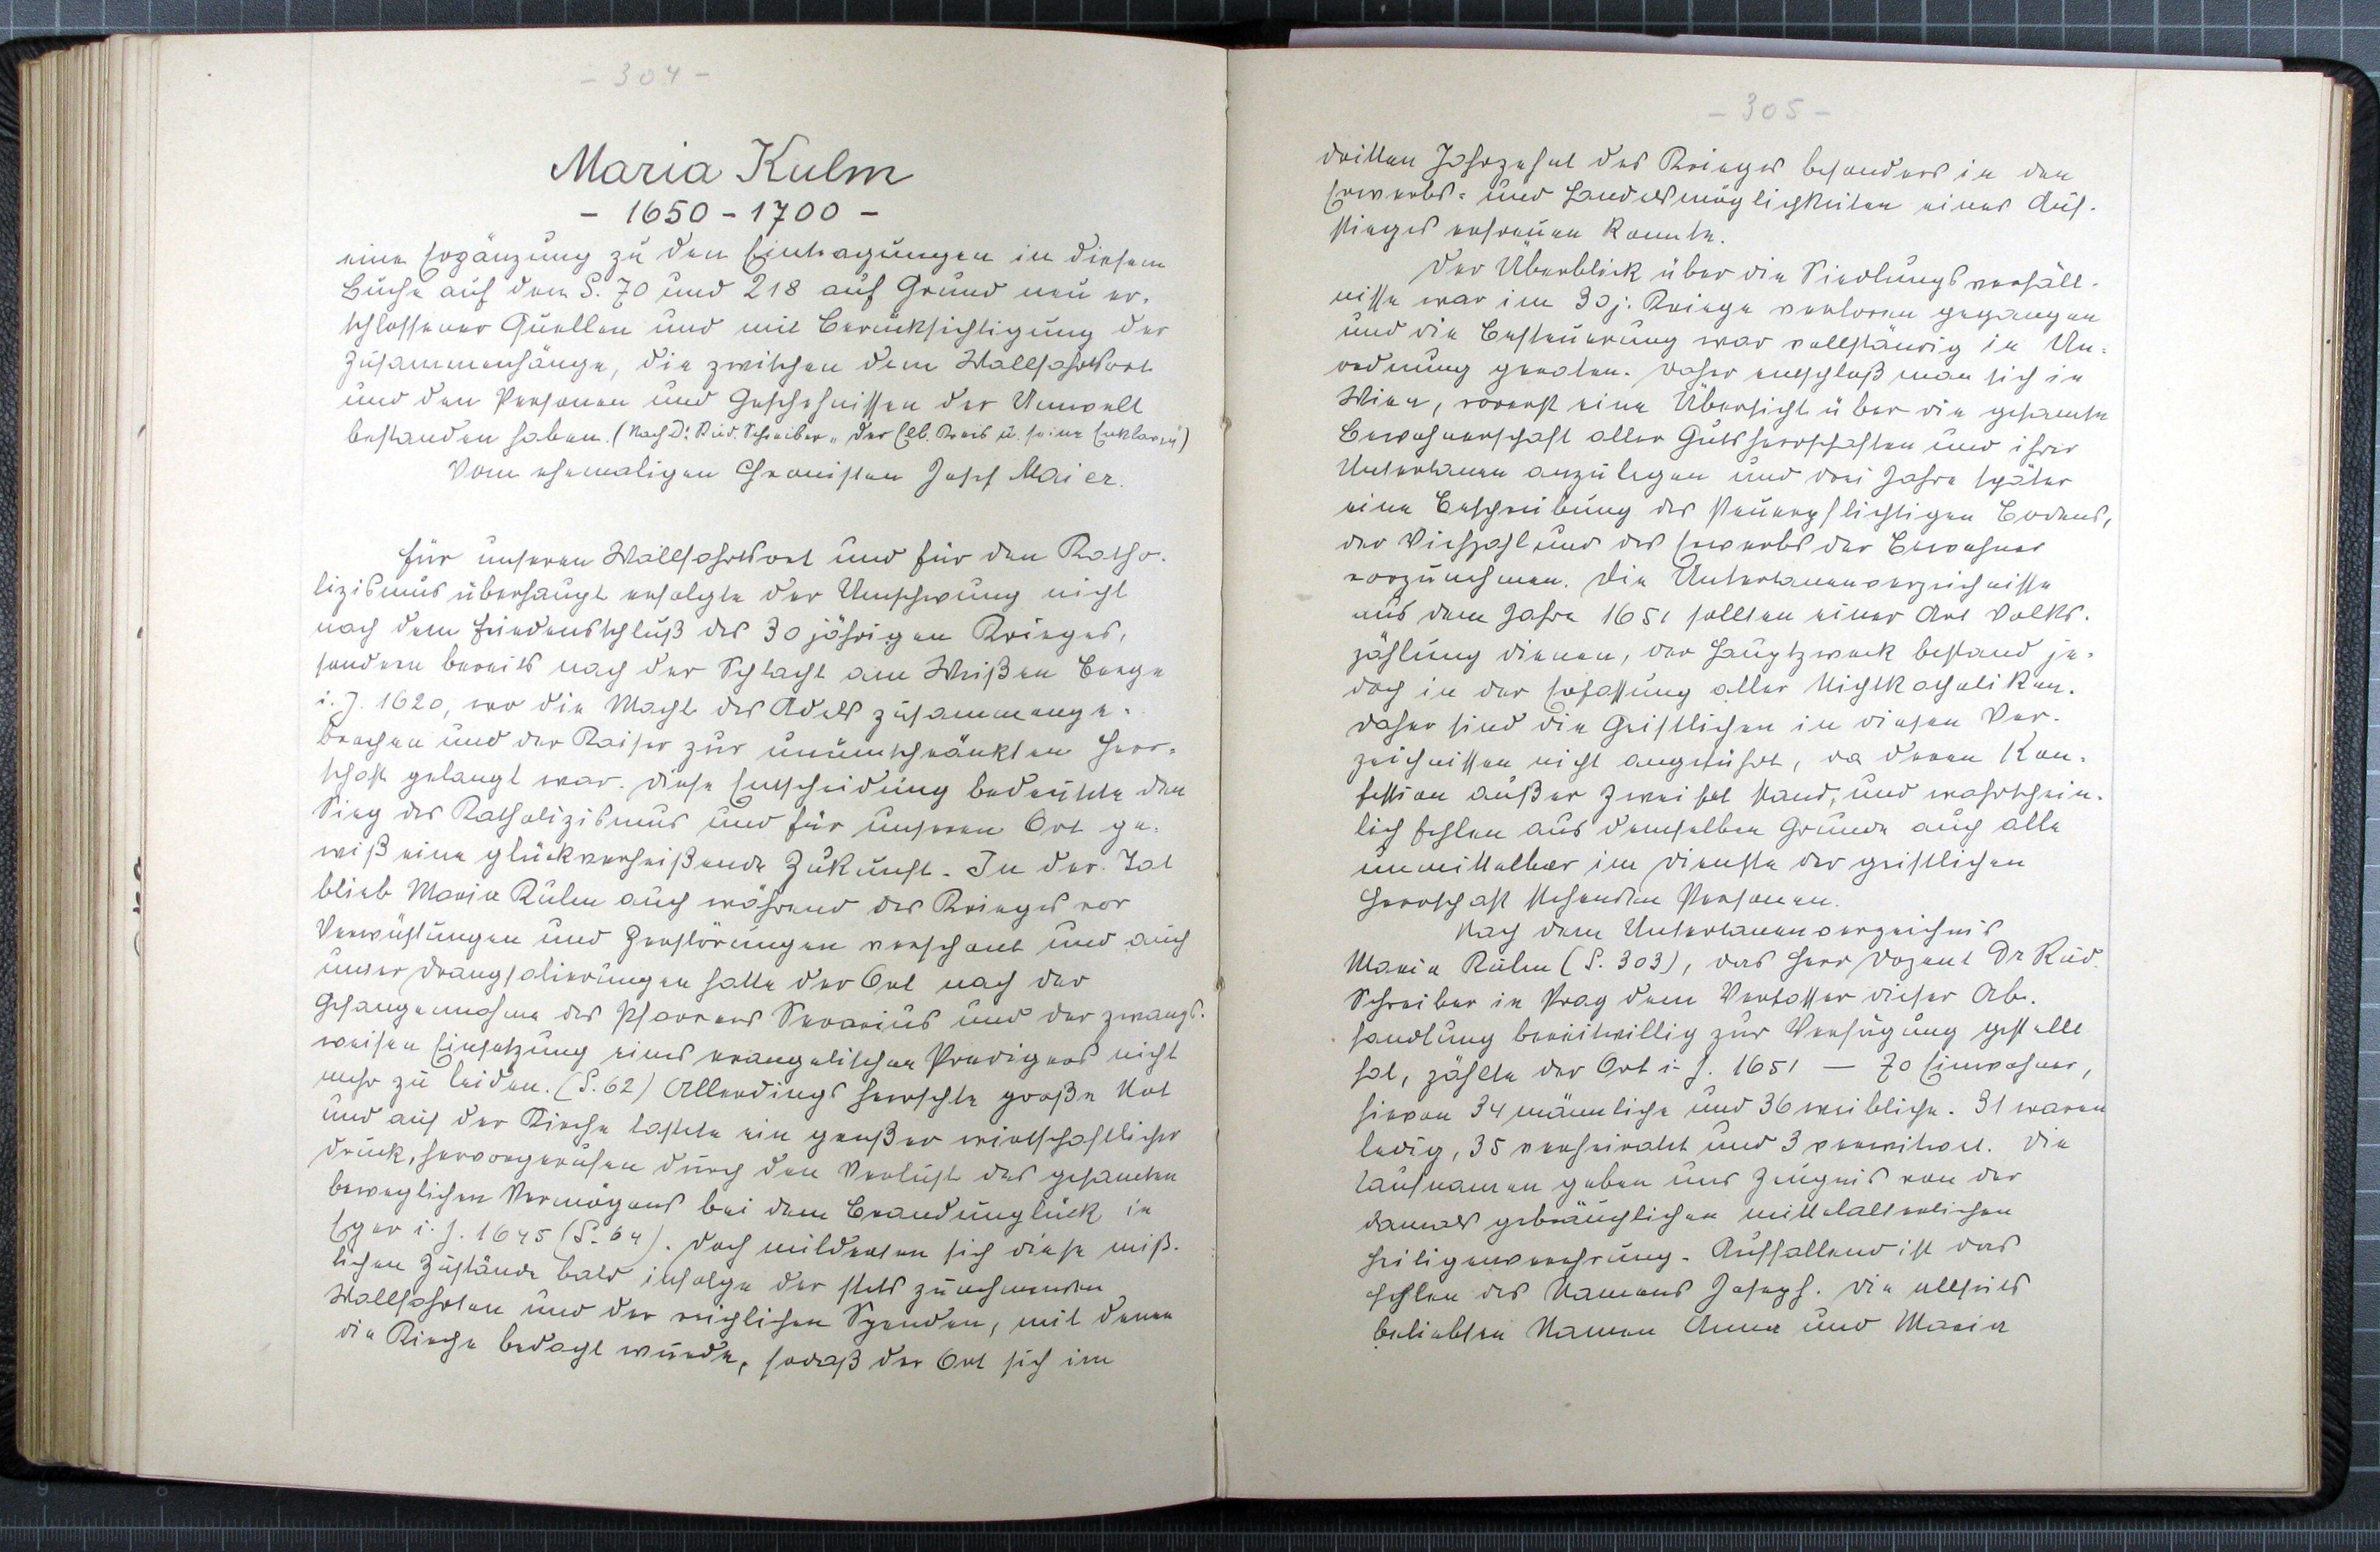 - 304 -
Maria Kulm
- 1650 - 1700 -
eine Ergänzung zu den Eintragungen in diesem
Buche auf den S. 70 und 218 auf Grund neu er-
schlossener Quellen und mit Berücksichtigung der
Zusammenhänge, die zwischen dem Wallfahrtsort
und den Personen und Geschehnissen der Umwelt
bestanden haben. (Nach Dr. Rud. Schreiber „Der Elb. Kreis u. seine Enklaven")
Vom ehemaligen Chronisten Josef Maier.
Für unseren Wallfahrtsort und für den Katho-
lizismus überhaupt erfolgte der Umschwung nicht
nach dem Friedensschluß des 30 jährigen Krieges,
sondern bereits nach der Schlacht am Weißen Berge
i. J. 1620, wo die Macht des Adels zusammenge-
brochen und der Kaiser zur unumschränkten Herr-
schaft gelangt war. Diese Entscheidung bedeutete den
Sieg des Katholizismus und für unseren Ort ge-
wiß eine glückverheißende Zukunft. In der Tat
blieb Maria Kulm auch während des Krieges vor
Verwüstungen und Zerstörungen verschont und auch
unter Drangsalierungen hatte der Ort nach der
Gefangennahme des Pfarrers Serarius und der zwangs-
weisen Einsetzung eines evangelischen Predigers nicht
mehr zu leiden. (S. 62) Allerdings herrschte große Not
und auf der Kirche lastete ein großer wirtschaftlicher
Druck, hervorgerufen durch den Verlust des gesamten
beweglichen Vermögens bei dem Brandunglück in
Eger i. J. 1645 (S. 64). Doch milderten sich diese miß-
lichen Zustände bald infolge der stets zunehmenden
Wallfahrten und der reichlichen Spenden, mit denen
die Kirche bedacht wurde, sodaß der Ort sich im
- 305 -
dritten Jahrzehnt des Krieges besonders in den
Erwerbs- und Handelsmöglichkeiten eines Auf-
stieges erfreuen konnte.
Der Überblick über die Siedlungsverhält-
nisse war im 30 j. Kriege verloren gegangen
und die Besteuerung war vollständig in Un-
ordnung geraten. Daher entschloß man sich in
Wien, vorerst eine Übersicht über die gesamte
Bewohnerschaft aller Gutsherrschaften und ihrer
Untertanen anzulegen und drei Jahre später
eine Beschreibung des steuerpflichtigen Bodens,
der Viehzahl und des Erwerbs der Bewohner
vorzunehmen. Die Untertanenverzeichnisse
aus dem Jahre 1651 sollten einer Art Volks-
zählung dienen, der Hauptzweck bestand je-
doch in der Erfassung aller Nichtkatholiken.
Daher sind die Geistlichen in diesen Ver-
zeichnissen nicht angeführt, da deren Kon-
fession außer Zweifel stand, und wahrschein-
lich fehlen aus demselben Grunde auch alle
unmittelbar im Dienste der geistlichen
Herrschaft stehenden Personen.
Nach dem Untertanenverzeichnis
Maria Kulm (S. 303), das Herr Dozent Dr Rud.
Schreiber in Prag dem Verfasser dieser Ab-
handlung bereitwillig zur Verfügung gestellt
hat, zählte der Ort i. J. 1651 — 70 Einwohner,
hievon 34 männliche und 36 weibliche. 31 waren
ledig, 35 verheiratet und 3 verwitwet. Die
Taufnamen geben uns Zeugnis von der
damals gebräuchlichen mittelalterlichen
Heiligenverehrung. Auffallend ist das
Fehlen des Namens Joseph. Die allseits
beliebten Namen Anna und Maria